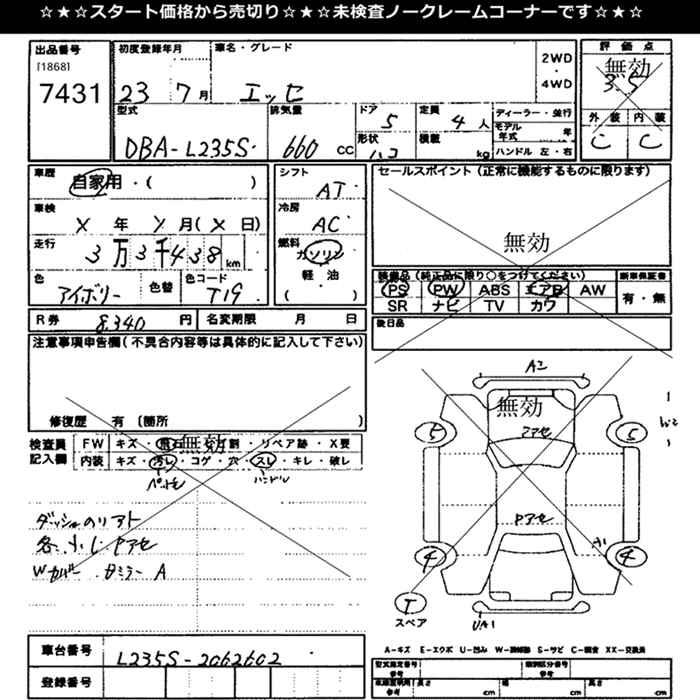 ☆★☆スタート価格から売切り☆★☆未検査ノークレームコーナーです☆★☆
出品番号 初度登録年月 車名・グレード 2WD・4WD 評価点
[1868]
7431 23 7月 エッセ 無効 3.5
型式 排気量 ドア 5 定員 4人 ディーラー・並行
DBA-L235S 660 CC 形状 積載 kg モデル年式 年
ハンドル 左・右
外装 内装
C C
車歴 自家用・( )
シフト AT
セールスポイント (正常に機能するものに限ります)
無効
車検 X 年 X 月(X 日)
冷房 AC
走行 3万3千438km
燃料 ガソリン 軽・油 ( )
色 アイボリー 色替 色コード T19
装備品 (純正品に限り○をつけてください) 新車保証書
PS PW ABS エアB AW 有・無
SR ナビ TV カワ
R券 8,340 円 名変期限 月 日
後日品
注意事項申告欄(不具合内容等は具体的に記入して下さい)
修復歴 有 (箇所
無効
検査員記入欄 FW キズ・飛石・ 割・リペア跡・X要
内装 キズ・汚レ・コゲ・穴・スレ・キレ・破レ
ハンドル
各 Pアセ
Wカバー ミラー A
A2
無効
アアセ
5 5
W2
Pアセ
A1
4 4
T
スペア
UA1
A-キズ E-エクボ U-凹み W-補修跡 S-サビ C-腐食 XX-交換済
車台番号 L235S-2062602
登録番号
型式指定番号 参考 類別区分番号 参考
参考 長さ cm 幅 cm 高さ cm